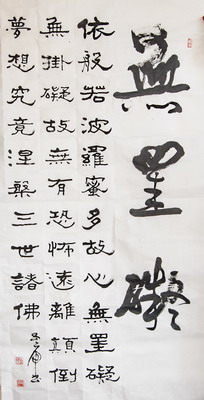 無罣礙
依般若波羅蜜多故心無罣礙
無掛礙故無有恐怖遠離顛倒
夢想究竟涅槃三世諸佛